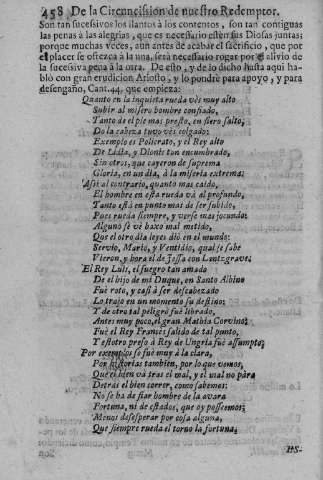 458 De la Circuncision de nuestro Redemptor.
Son tan sucessivos los llantos à los contentos, son tan contiguas
las penas à las alegrias, que es necessario estèn sus Diosas juntas;
porque muchas veces, aun antes de acabar el sacrificio, que por
el placer se ofrezca à la una, serà necessario rogar por el alivio de
la sucesiva pena à la otra. De esto, y de lo dicho hasta aqui ha-
blò con gran erudicion Ariosto, y lo pondrè para apoyo, y para
desengaño, Cant. 44, que empieza:
Quanto en la inquieta rueda vès muy alto
Subir al misero hombre confiado,
Tanto de el pie mas presto, en fiero salto,
Do la cabeza tuvo vès colgado:
Exemplo es Policrato, y el Rey alto
De Lidia, y Dionis tan encumbrado,
Sin otros, que cayeron de suprema
Gloria, en un dia, à la miseria extrema:
Assi al contrario, quanto mas caido,
El hombre en esta rueda và al profundo,
Tanto està en punto mas de ser subido,
Pues rueda siempre, y verse mas jocundo:
Alguno se vè baxo mal metido,
Que el otro dia leyes diò en el mundo:
Servio, Mario, y Ventidio, qual se sabe
Vieron, y hora el de Jessa con Lantzgrave:
El Rey Luis, el suegro tan amado
De el hijo de mi Duque, en Santo Albino
Fuè roto, y casi à ser descabezado
Lo trajo en un momento su destino:
Y de otro tal peligro fuè librado,
Antes muy poco, el gran Mathia Corvino;
Fuè el Rey Francès salido de tal punto,
Y estotro preso à Rey de Ungria fuè assumpto;
Por exemplos se fuè muy à la clara,
Por historias tambien, por lo que vemos,
Que el bien và tras el mal, y el mal no para
Detràs el bien correr, como sabemos:
No se ha de fiar hombre de la avara
Fortuna, ni de estados, que oy posseemos;
Menos desesperar por cosa alguna,
Que siempre rueda el torno la fortuna;
PS-